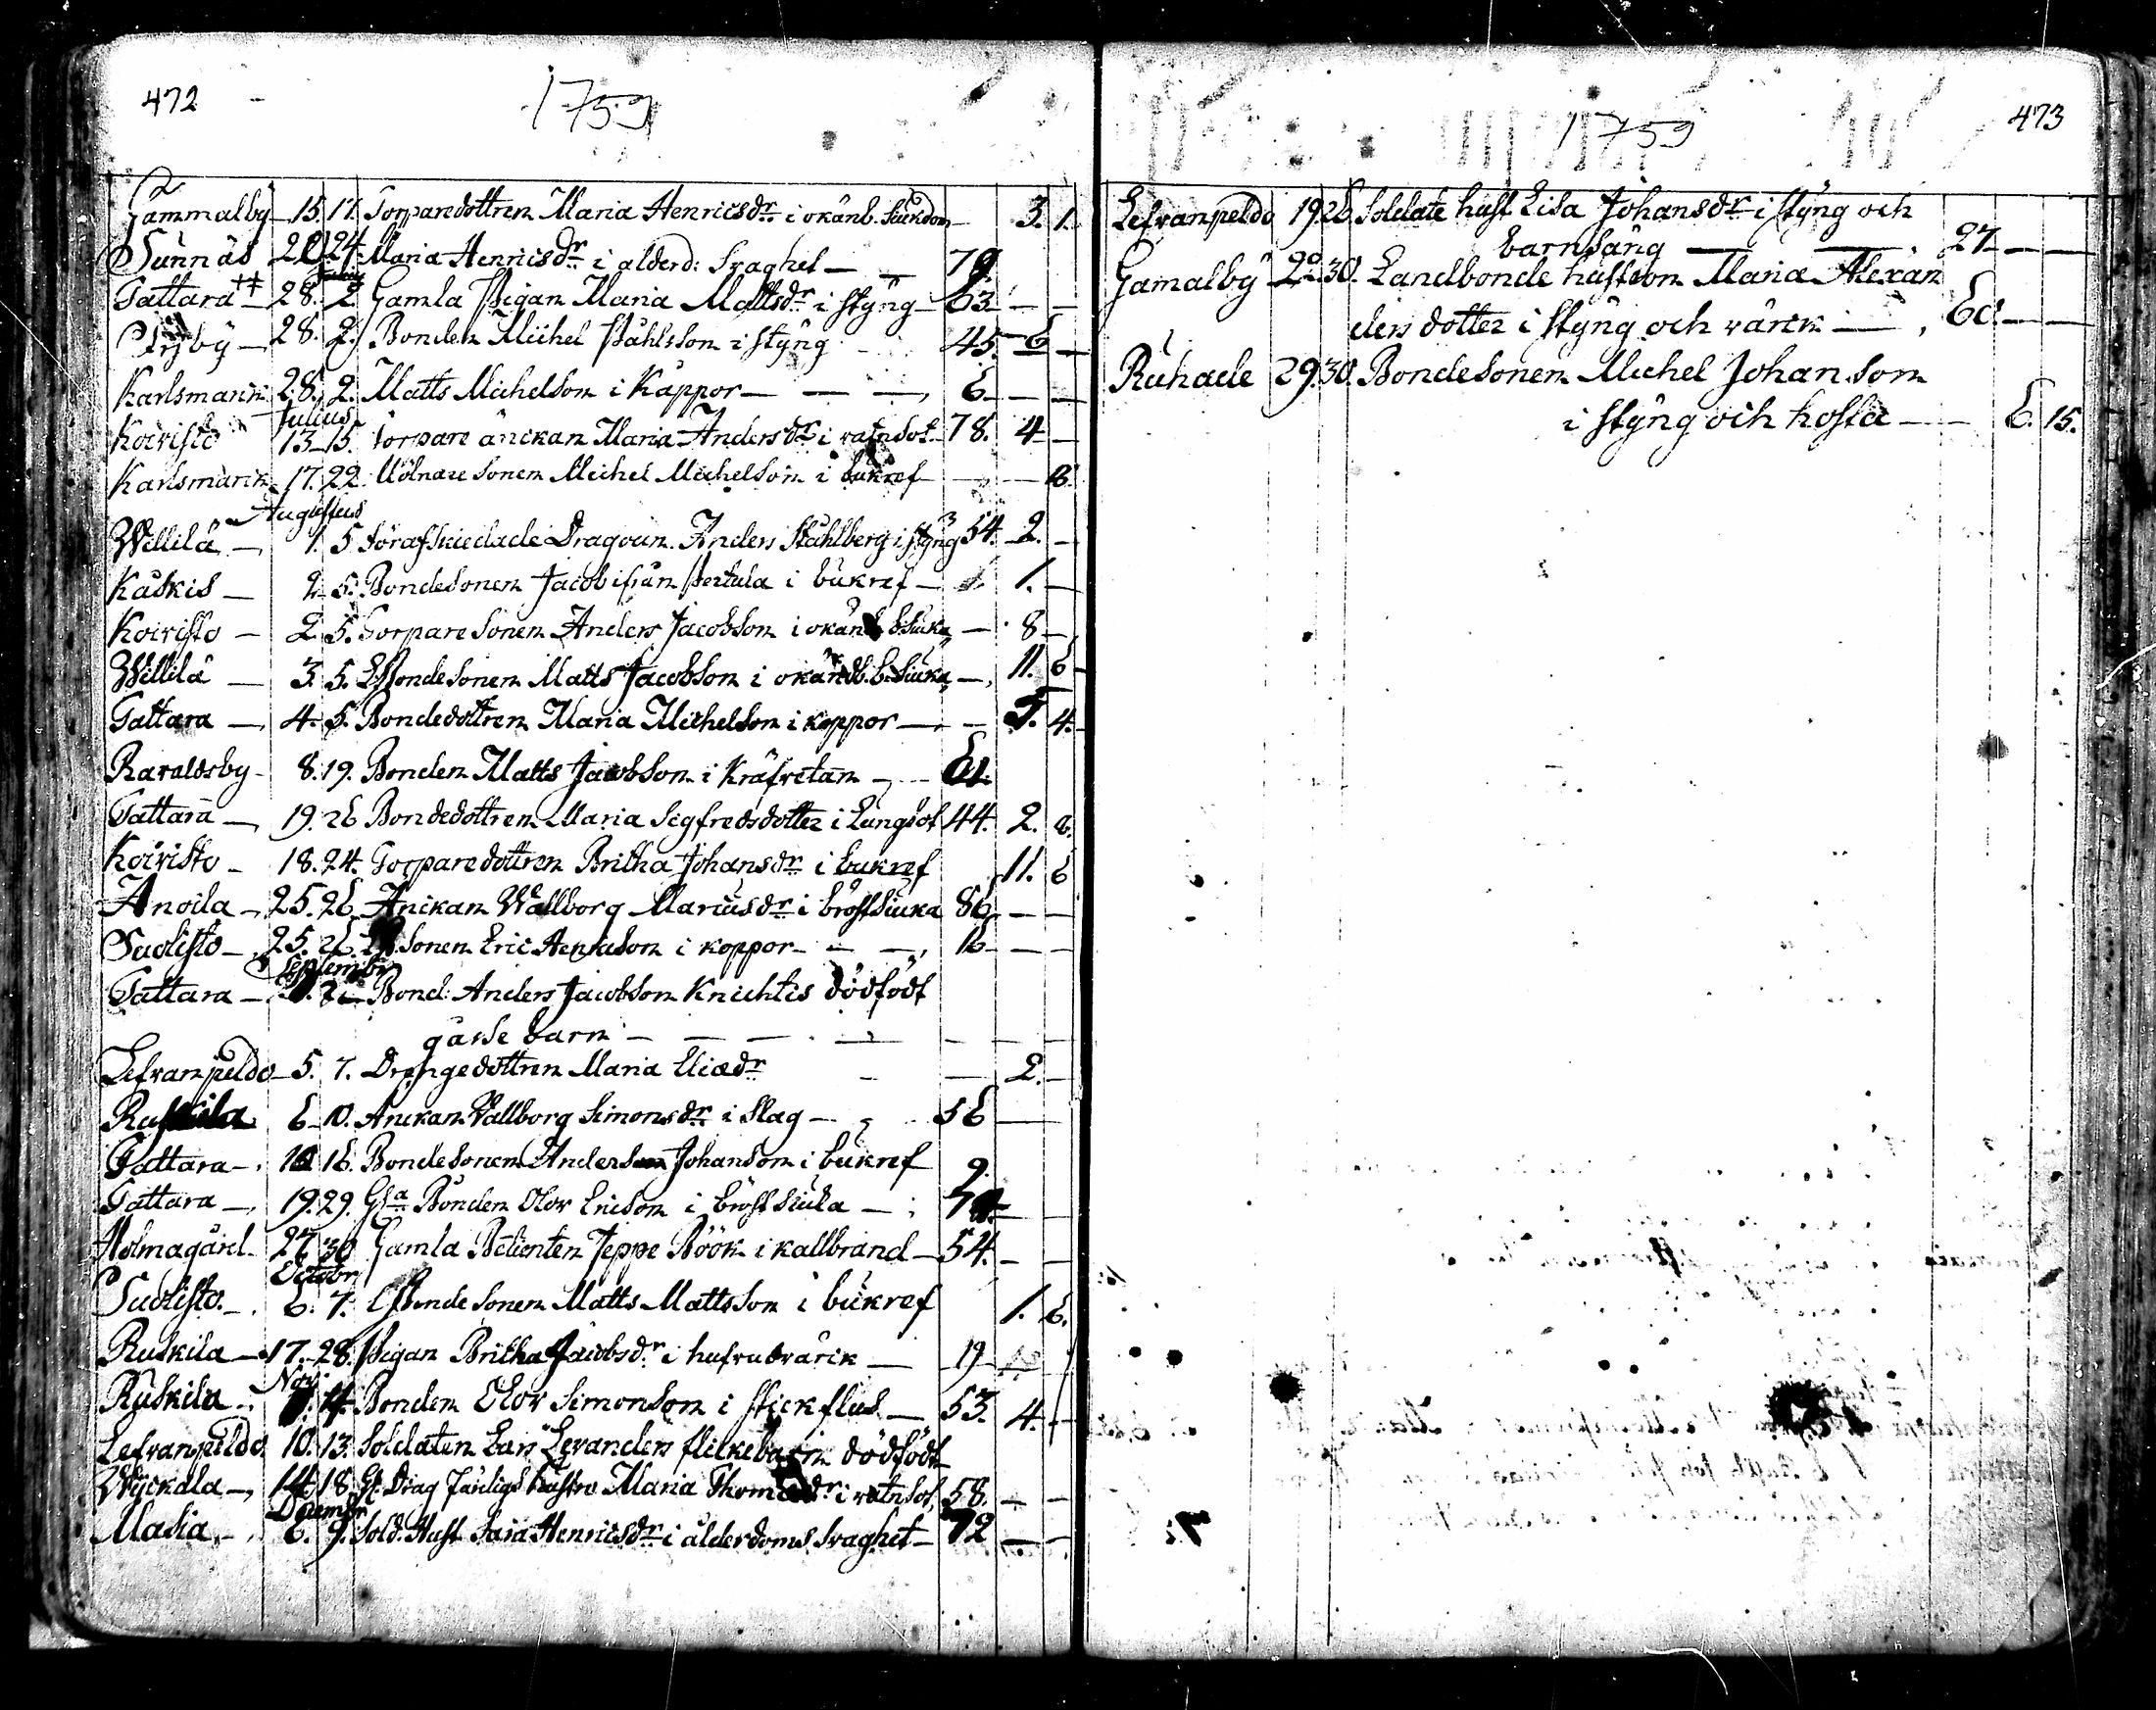 472
1759
Gammalby 15. 17. Torparedottren Maria Henricsdr i okänd. Siukdom 3. 1.
Sunnäs 20 24. Maria Henricsdr i alderd: Svaghet 79.
Tattara 28. 2 Gamla Pigan Maria Mattsdr i styng 63
28. 2. Bonden Michel Påhlsson i styng 45. 6
Karlsmark 28. 2. Matts Michelson i Kåppor 6
Julius
Koivisto 13 15. Torpare änckan Maria Andersdr i vatnsot 78. 4
Karlsmark 17. 22. Mölnare sonen Michel Michelson i bukref 8.
Augustus
Willilä 1. 5 Förafskiedade Dragoun. Anders Ståhlberg i styng 54. 2.
Kåskis 2 5. Bondesonen Jacob ifrån Pertula i bukref 1.
Koivisto 2 5. Torpare sonen Anders Jacobson i okänd b.siuka 8
Willilä 3. 5. Bondesonen Matts Jacobson i okändb. b.Siuka 11. 6
Tattara 4. 5. Bondedottren Maria Michelson i koppor 5. 4.
Haraldsby 8. 19. Bonden Matts Jacobson i Kräfvetan 61.
Tattara 19. 26 Bondedottren Maria Sigfredsdotter i Lungsot 44. 2. 8.
Koivisto 18. 24. Torparedottren Britha Johansdr i bukref 11. 6
Anoila 25. 26 Änckan Wallborg Marcusdr i bröstsiuka 86
Suolisto 25. 26 sonen Eric Henricson i koppor 16
September
Tattara Bond: Anders Jacobson Knichtis dödfödt
gåsse barn
Lefvanpeldo 5. 7. Drengedottren Maria Eliædr 2.
6 10. Änckan Wallborg Simonsdr i Slag 56
Tattara 10 16. Bondesonen Anders Johanson i bukref 9.
Tattara 19. 29. Gla Bonden Olov Ericson i bröst siuka
Holmagård 27 30 Gamla Betienten Jeppe Böök i kallbrand 54.
Octobr
Suolisto 6. 7. Bonde sonen Matts Mattsson i bukref 1. 6.
Ruskila 17. 28. Pigan Britha Jacobsdr i hufvudvärck 19
Nov
Ruskila 14. Bonden Olov Simonson i stickflus 53. 4.
Lefvanpeldo 10. 13. Soldaten Lars Levanders flickebarn dödfödt
Wyckala 14 18. Drag hustro Maria Thomædr i vatnsot 58.
Decembr
Masia 6. 9. Sold. Hust Caisa Henricsdr i ålderdoms svaghet 72
473
1759
Lefvanpeldo 19. 26. Soldate hust Lisa Johansdr i styng och
barnsäng 27
Gamalby 22. 30. Landbonde hustron Maria Alexan
ders dotter i styng och värck 60.
Ruhade 29. 30. Bondesonen Michel Johanson
i styng och hosta 6. 15.